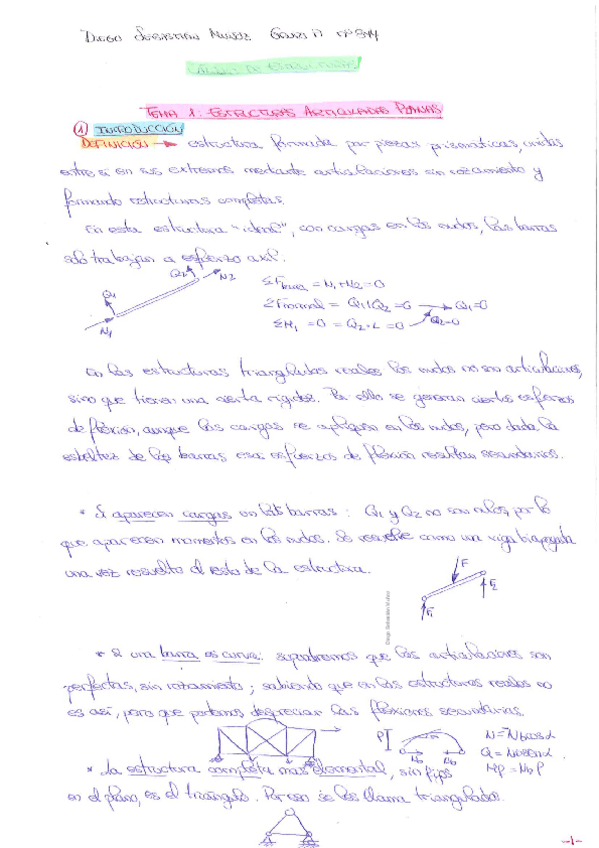 DIEGO SEBASTIÁN MUÑOZ GRUPO D Nº
TEMA 1: ESTRUCTURAS ARTICULADAS PLANAS
① INTRODUCCIÓN
DEFINICIÓN → estructura formada por piezas prismáticas, unidas
entre si en sus extremos mediante articulaciones sin rozamiento y
formando estructuras completas.
En esta estructura "ideal", con cargas en los nudos, las barras
solo trabajan a esfuerzo axil.
Q1 N1 Q2 N2
ΣF = N1+N2=0
ΣFnormal = Q1+Q2=0 → Q1=0
ΣM1 =0 = Q2·L =0 → Q2=0
En las estructuras trianguladas reales los nudos no son articulaciones,
sino que tienen una cierta rigidez. Por ello se generan ciertos esfuerzos
de flexión, aunque las cargas se apliquen en los nudos, pero dada la
esbeltez de las barras esos esfuerzos de flexión resultan secundarios.
* Si aparecen cargas en las barras: Q1 y Q2 no son nulos, por lo
que aparecen momentos en los nudos. Se resuelve como una viga biapoyada
una vez resuelto el resto de la estructura.
F F1 F2
Diego Sebastián Muñoz
* Si una barra es curva: supondremos que las articulaciones son
perfectas, sin rozamiento; sabiendo que en las estructuras reales no
es así, pero que podemos despreciar las flexiones secundarias.
P Nb Nb
N=Nb cosα
Q=Nb senα
MP=Nb P
* La estructura completa mas elemental, sin
en el plano, es el triángulo. Por eso se les llama trianguladas.
-1-